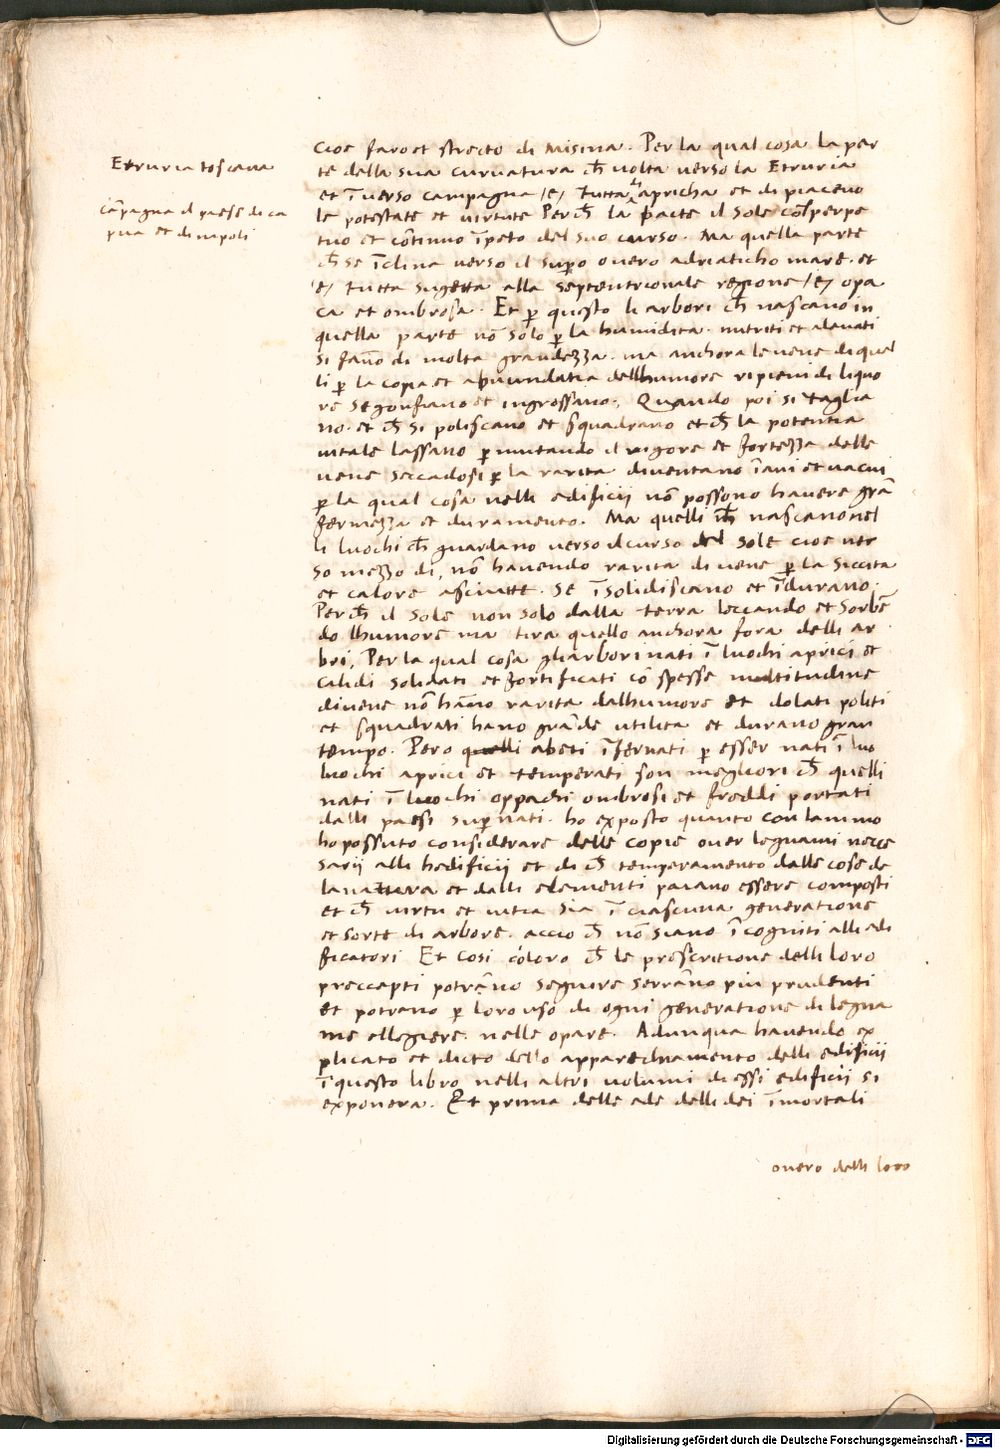 Etruria toscana
Cāpagna el paese di ca
pua et di napoli
cioe faro et strecto di Misina. Per la qual cosa la par
te della sua curvatura cħ volta verso la Etruria
et ī verso campagna /e/ tutta apricha et di piacevo
le potestate et virtute Percħ la parte il sole cōl perpe
tuo et cōtinuo īpeto del suo curso. Ma quella parte
cħ se īclina verso il supero overo adriaticho mare. et
/e/ tutta sugetta alla septentrionale regione /e/ opa
ca et ombrosa. Et ꝑ questo li arbori cħ nascano in
quella parte nō solo ꝑ la humidita. nutriti et alevati
si fāno di molta grandezza. ma anchora le vene di quel
li ꝑ la copia et abuundatia dellhumore ripieni di liquo
re se gonfiano et ingrossano. Quando poi si taglia
no. et cħ si poliscano et squadrano et cħ la potentia
vitale lassano ꝑmutando il rigore et fortezza delle
vene seccadosi ꝑ la rarita diventano īani et vacui
ꝑ la qual cosa nelli edificii nō possono havere grā
fermezza et duramento. Ma quelli cħ nascano nel
li luochi cħ guardano verso il curso del sole cioe ver
so mezzo di, nō havendo rarita di vene ꝑ la siccita
et calore asciutte. Se ī solidiscano et īdurano.
Percħ il sole non solo dalla terra leccando et sorbē
do lhumore ma tira quello anchora fora delli ar
bri, Per la qual cosa gli arbori nati ī luochi aprici et
calidi solidati et fortificati cō spesse multitudine
di vene nō hāno rarita dalhumore et dolati politi
et squadrati hano grāde utilita et durano gran
tempo. Pero quelli abeti īfernati ꝑ esser nati ī luo
luochi aprici et temperati son megliori cħ quelli
nati ī luochi oppachi ombrosi et freddi portati
dalli paesi supernati. ho exposto quanto con lanimo
ho possuto considerare delle copie over legnami neces
sarii alli hedificii et di cħ temperamento dalle cose de
la natura et dalli elementi paiano essere composti
et cħ virtu et vitia sia ī ciascuna generatione
et sorte di arbore. accio cħ nō siano īcogniti alli edi
ficatori Et cosi coloro cħ le prescritione delli loro
preccepti potrāno seguire serrāno piu prudenti
et potrano ꝑ loro uso di ogni generatione di legna
me elleggiere. nelle opare. Adunqua havendo ex
plicato et dicto dello apparechiamento delli edificii
ī questo libro nelli altri volumi di essi edificii si
exponera. Et prima delle ade delli dei īmortali
overo delli loro
Digitalisierung gefördert durch die Deutsche Forschungsgemeinschaft - DFG